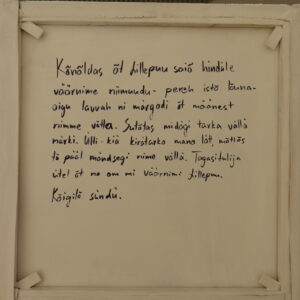 Kõnõldas õt Lillepuu saiõ hindäle
väärnime niimuudu - pereh istõ lõuna-
aigu lauvah ni märgodi õt määnest
nimme võtta. Sutõtas midägi tarka vällä
märki. Ülli - kiä kirotarko mano lät, mõtlõs
tä pääl määndsegi nime vällä. Tagasitulija
ütel õt no om mi väärnimi Lillepuu.
Kõigilõ sündü.